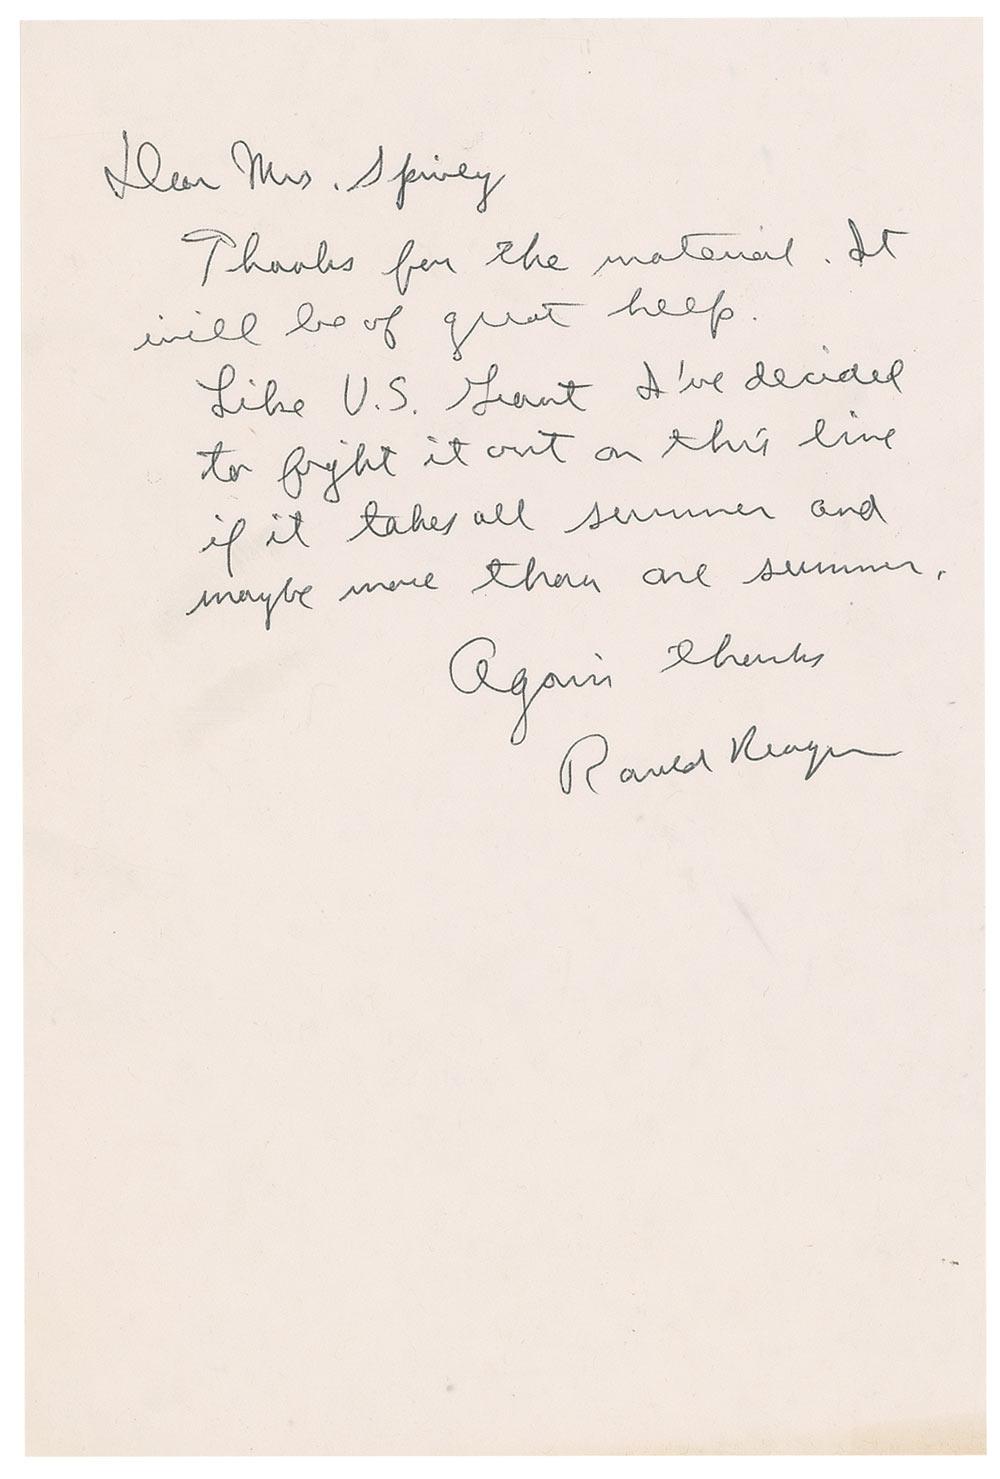 Dear Mrs. Spivey
Thanks for the material. It
will be of great help.
Like U.S. Grant I've decided
to fight it out on this line
if it takes all summer and
maybe more than one summer.
Again thanks
Ronald Reagan